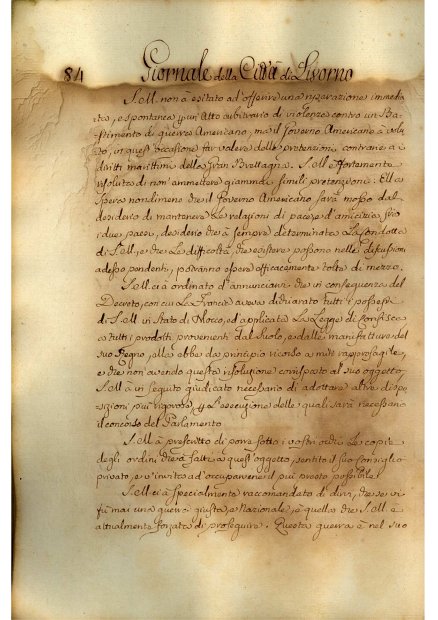 84 Giornale della Città di Livorno
S.M. non à esitato ad' offerire una riparazione immedia
ta, e spontanea p un Atto arbitrario di violenza contro un Ba-
stimento di guerra Americano, ma il Governo Americano à volu
to, in quest' occasione far valere delle pretenzioni contrarie a i
diritti marittimi della Gran Brettagna. S.M. è fortemente
risoluta di non' ammettere giammai simili pretenzioni. Ella
spera nondimeno che il Governo Americano sarà mosso dal
desiderio di mantenere le relazioni di pace, e d'amicizia frà
i due paesi, desiderio che à sempre determinata la condotta
di S.M., e che le difficoltà, che esistere possono nelle discussioni
adesso pendenti, potranno essere efficacemente tolte di mezzo.
S.M. ci à ordinato d'annunciarvi che in conseguenza del
Decreto, con cui la Francia aveva dichiarato tutti i possessi
di S.M. in stato di blocco, ed applicata la Legge di Confisca
a tutti i prodotti provenienti dal suolo, e dalle manifatture del
suo Regno, ella ebbe da principio ricorso a miti rappresaglie,
e che non avendo questa risoluzione corrisposto al suo oggetto,
S.M. à in seguito giudicato necessario di adottare altre dispo-
sizioni più rigorose, p l'esecuzione delle quali sarà necessario
il concorso del Parlamento.
S.M. à prescritto di porre sotto i vostri occhi le copie
degli ordini che à fatti a quest' oggetto, sentito il suo consiglio
privato, e v' invita ad' occuparvene il più presto possibile.
S.M. ci à specialmente raccomandato di dirvi, che se vi
fù mai una guerra giusta, e Nazionale, è quella che S.M. è
attualmente forzata di proseguire. Questa guerra è nel suo